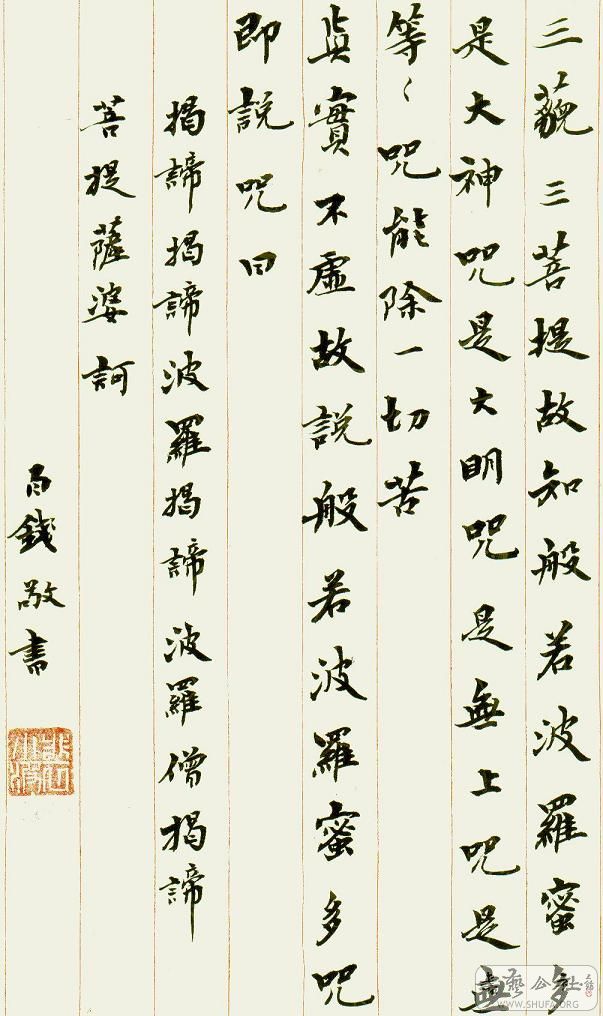 三藐三菩提故知般若波羅蜜多
是大神咒是大明咒是無上咒是無
等〻咒能除一切苦
真實不虛故說般若波羅蜜多咒
即說咒曰
揭諦揭諦波羅揭諦波羅僧揭諦
菩提薩婆訶
錢敬書
藝公社
WWW.SHUFA.ORG